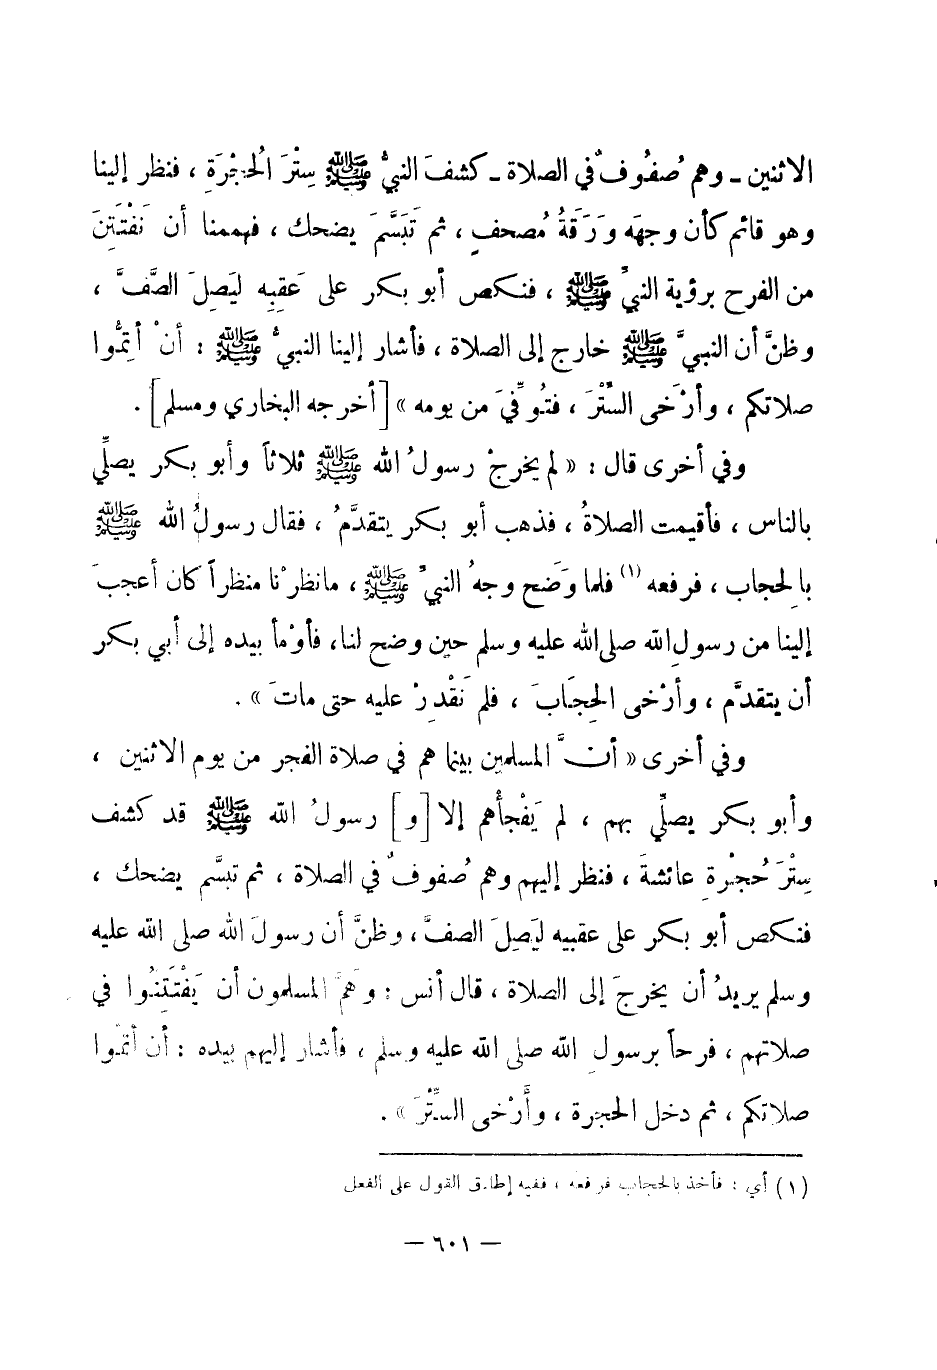 الاثنين ـ وهم صُفُوفٌ في الصلاة ـ كشفَ النبيُّ ﷺ سِتْرَ الحُجْرَةِ ، فنظر إلينا
وهو قائم كأن وجهَه وَرَقَةُ مُصحفٍ ، ثم تَبَسَّمَ يضحك ، فهممنا أن نَفْتَتِنَ
من الفرح برؤية النبيِّ ﷺ ، فنكص أبو بكر على عَقِبِه ليَصِلَ الصَّفَّ ،
وظنَّ أن النبيَّ ﷺ خارج إلى الصلاة ، فأشار إلينا النبيُّ ﷺ : أنْ أتِمُّوا
صلاتكم ، وأرْخَى السِّتْرَ ، فتُوفِّيَ من يومه » [أخرجه البخاري ومسلم] .
وفي أخرى قال : « لم يخرجْ رسولُ الله ﷺ ثلاثاً وأبو بكر يصلِّي
بالناس ، فأقيمت الصلاةُ ، فذهب أبو بكر يتقدَّمُ ، فقال رسولُ الله ﷺ
بالحجاب ، فرفعه (١) فلما وَضَح وجهُ النبيِّ ﷺ ، مانظرْنا منظراً كان أعجبَ
إلينا من رسولِ الله صلى الله عليه وسلم حين وضح لنا، فأوْمأ بيده إلى أبي بكر
أن يتقدَّم ، وأرْخى الحِجَابَ ، فلم نَقْدِرْ عليه حتى ماتَ » .
وفي أخرى « أنَّ المسلمين بينما هم في صلاة الفجر من يوم الاثنين ،
وأبو بكر يصلِّي بهم ، لم يَفْجأْهم إلا [و] رسولُ الله ﷺ قد كشف
سِتْرَ حُجْرةِ عائشةَ ، فنظر إليهم وهم صُفوفٌ في الصلاة ، ثم تبسَّم يضحك ،
فنكص أبو بكر على عقبيه ليَصِلَ الصفَّ ، وظنَّ أن رسولَ الله صلى الله عليه
وسلم يريدُ أن يخرجَ إلى الصلاة ، قال أنس : وهَمَّ المسلمون أن يَفْتَتِنُوا في
صلاتهم ، فرحاً برسولِ الله صلى الله عليه وسلم ، فأشار إليهم بيده : أن أتمُّوا
صلاتكم ، ثم دخل الحجرة ، وأَرْخى السِّتْرَ » .
(١) أي : فأخذ بالحجاب فرفعه ، ففيه إطلاق القول على الفعل
— ٦٠١ —